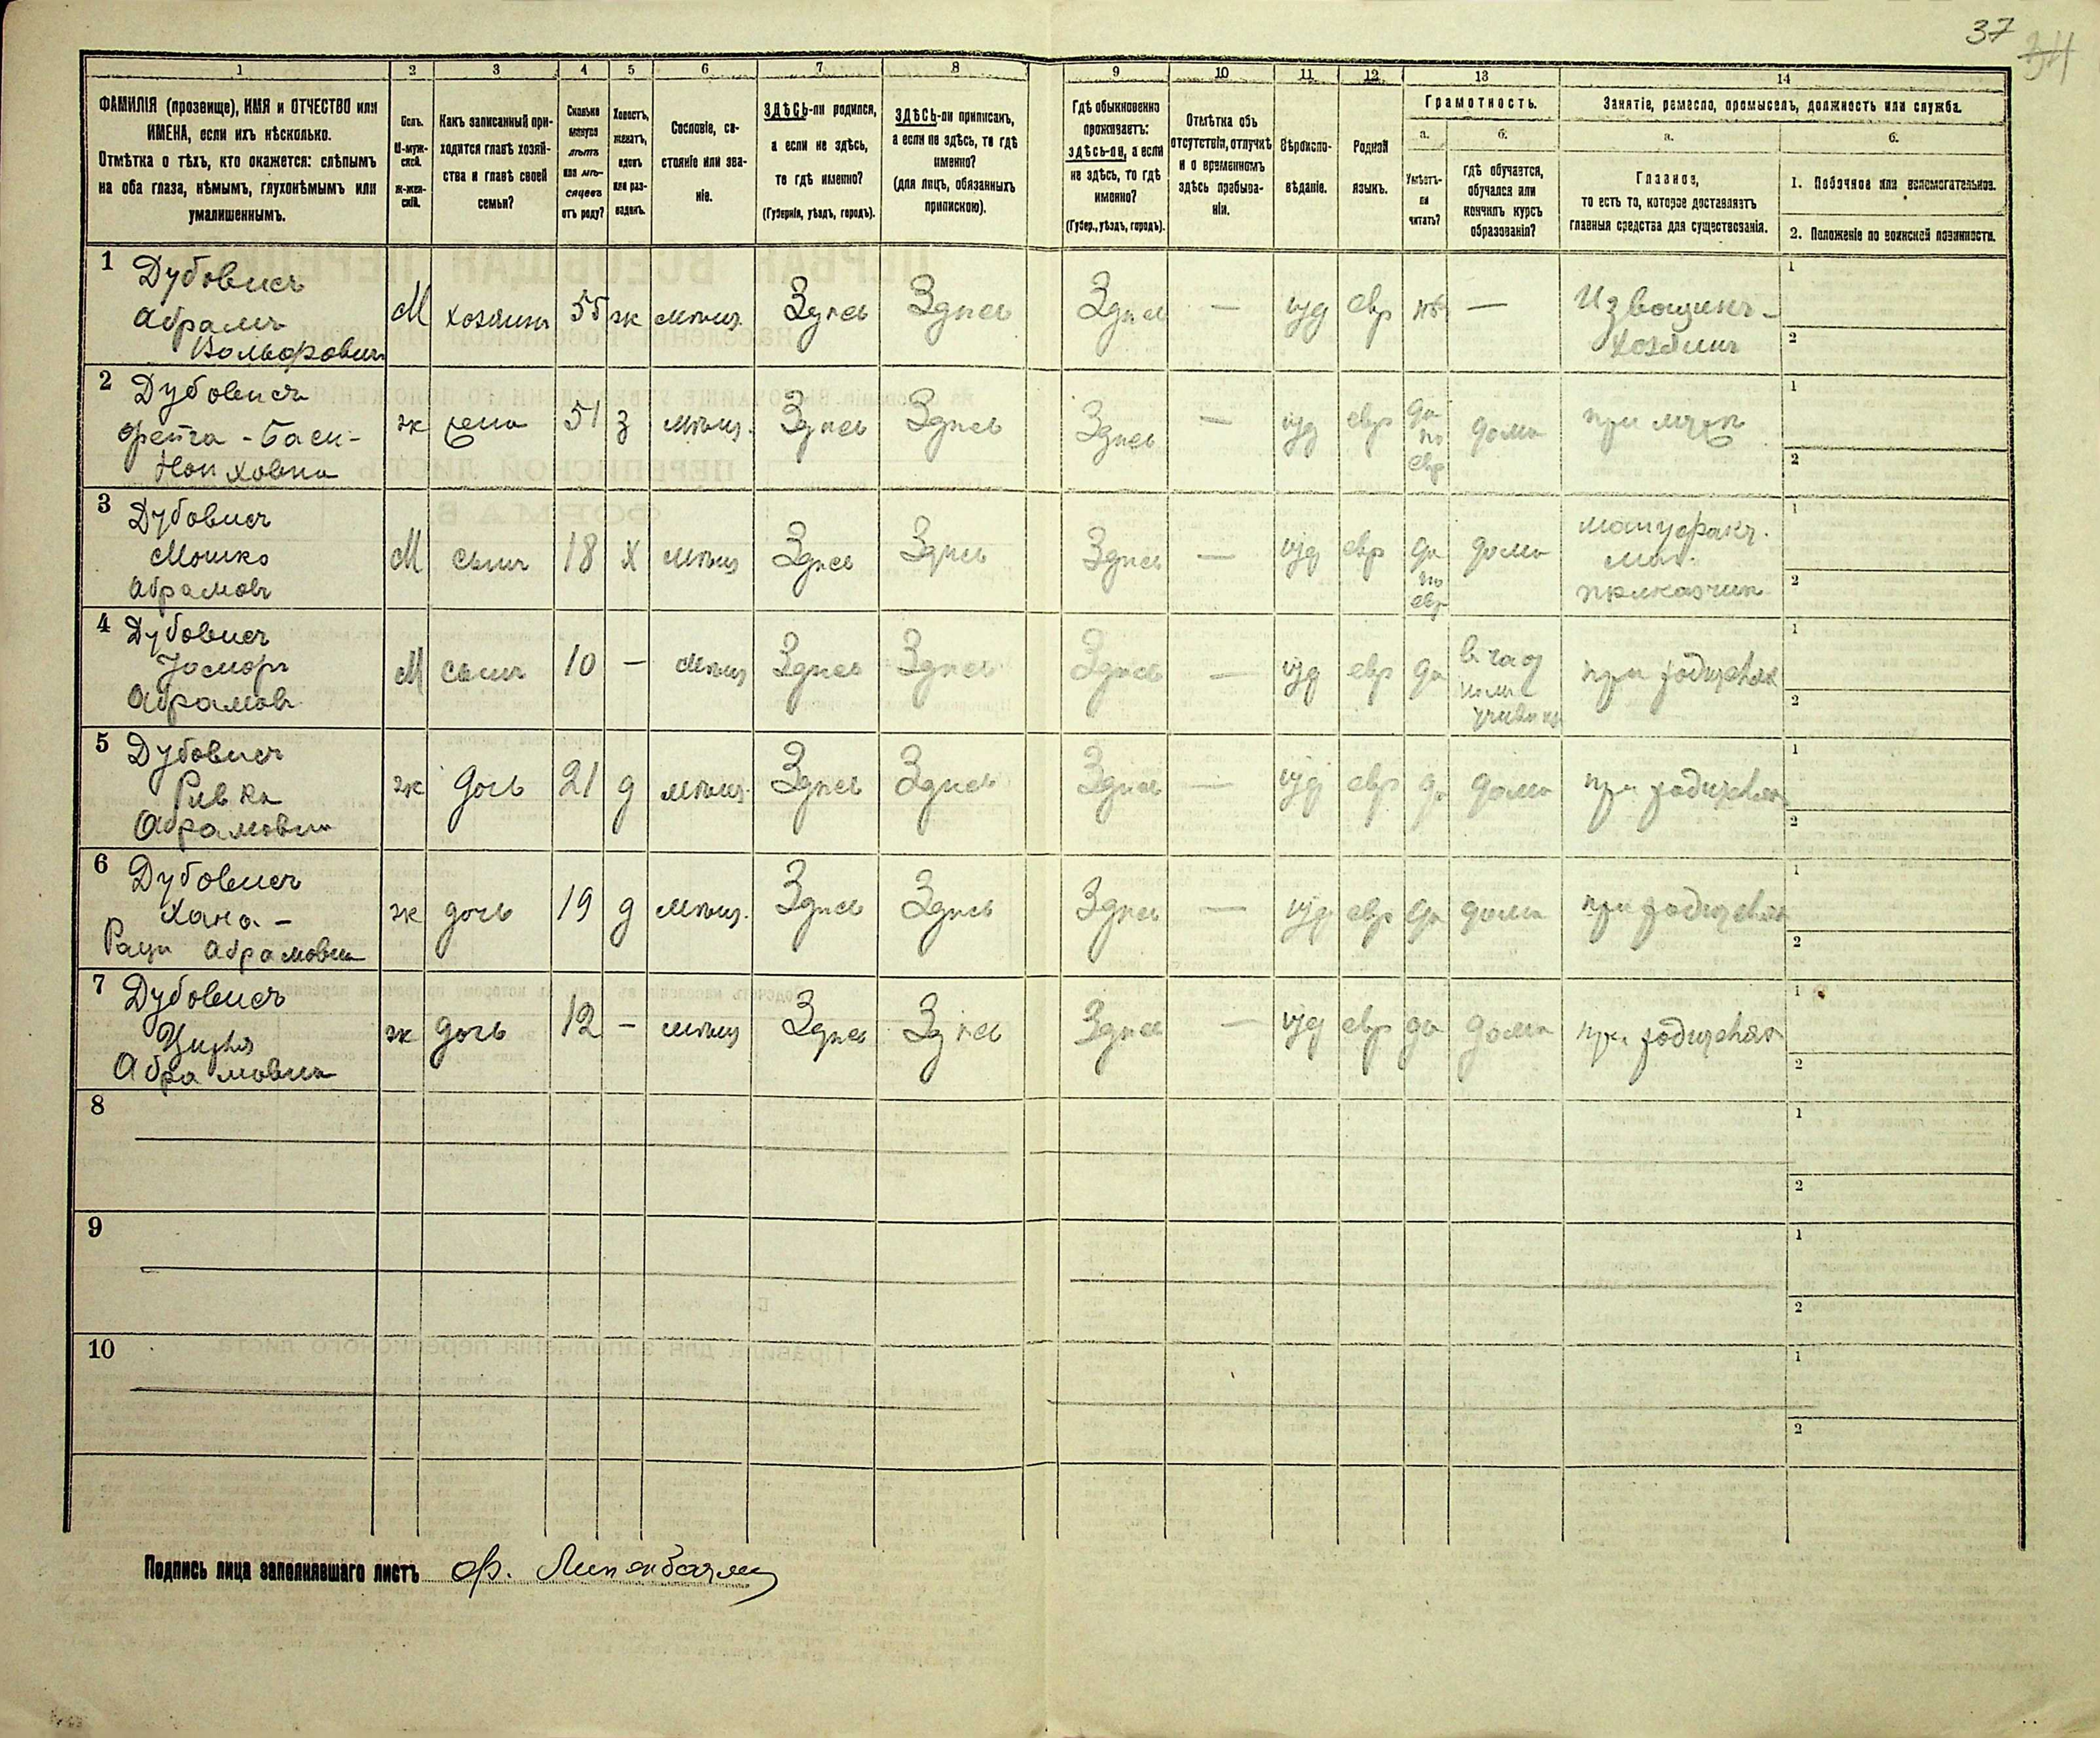 37
34
1 2 3 4 5 6 7 8 9 10 11 12 13 14
ФАМИЛІЯ (прозвище), ИМЯ и ОТЧЕСТВО или
ИМЕНА, если ихъ нѣсколько.
Отмѣтка о тѣхъ, кто окажется: слѣпымъ
на оба глаза, нѣмымъ, глухонѣмымъ или
умалишеннымъ.
Полъ.
М-муж-
ской.
Ж-жен-
скій.
Какъ записанный при-
ходится главѣ хозяй-
ства и главѣ своей
семьи?
Сколько
минуло
лѣтъ
или мѣ-
сяцевъ
отъ роду?
Холостъ,
женатъ,
вдовъ
или раз-
веденъ.
Сословіе, со-
стояніе или зва-
ніе.
ЗДѢСЬ-ли родился,
а если не здѣсь,
то гдѣ именно?
(Губернія, уѣздъ, городъ).
ЗДѢСЬ-ли приписанъ,
а если не здѣсь, то гдѣ
именно?
(для лицъ, обязанныхъ
припискою).
Гдѣ обыкновенно
проживаетъ:
здѣсь-ли, а если
не здѣсь, то гдѣ
именно?
(Губер., уѣздъ, городъ).
Отмѣтка объ
отсутствіи, отлучкѣ
и о временномъ
здѣсь пребыва-
ніи.
Вѣроиспо-
вѣданіе.
Родной
языкъ.
Грамотность.
а.
Умѣетъ-
ли
читать?
б.
гдѣ обучается,
обучался или
кончилъ курсъ
образованія?
Занятіе, ремесло, промыселъ, должность или служба.
а.
Главное,
то есть то, которое доставляетъ
главныя средства для существованія.
б.
1. Побочное или вспомогательное.
2. Положеніе по воинской повинности.
1 Дубовисъ
Абрамъ
Вольфовичъ
М хозяинъ 55 ж мѣщ. Здѣсь Здѣсь Здѣсь — іуд евр нѣт —
Извощикъ -
хозяинъ
1
2
2 Дубовисъ
Фейга - Баси-
Ноиховна
ж жена 51 з мѣщ. Здѣсь Здѣсь Здѣсь — іуд евр
да
по
евр
дома при мужѣ
1
2
3 Дубовисъ
Мошко
Абрамовъ
М сынъ 18 х мѣщ Здѣсь Здѣсь Здѣсь — іуд евр
да
по
евр
дома
мануфакт.
маг.
приказчик
1
2
4 Дубовисъ
Іосифъ
Абрамовъ
М сынъ 10 — мѣщ Здѣсь Здѣсь Здѣсь — іуд евр да
при родителях
1
2
5 Дубовисъ
Ривка
Абрамовна
ж дочь 21 д мѣщ. Здѣсь Здѣсь Здѣсь — іуд евр да дома при родителях
1
2
6 Дубовисъ
Хана -
Раци Абрамовна
ж дочь 19 д мѣщ. Здѣсь Здѣсь Здѣсь — іуд евр да дома при родителях
1
2
7 Дубовисъ
Ципья
Абрамовна
ж дочь 12 — мѣщ Здѣсь Здѣсь Здѣсь — іуд евр да дома при родителях
1
2
8
1
2
9
1
2
10
1
2
Подпись лица заполнявшаго листъ Ф.